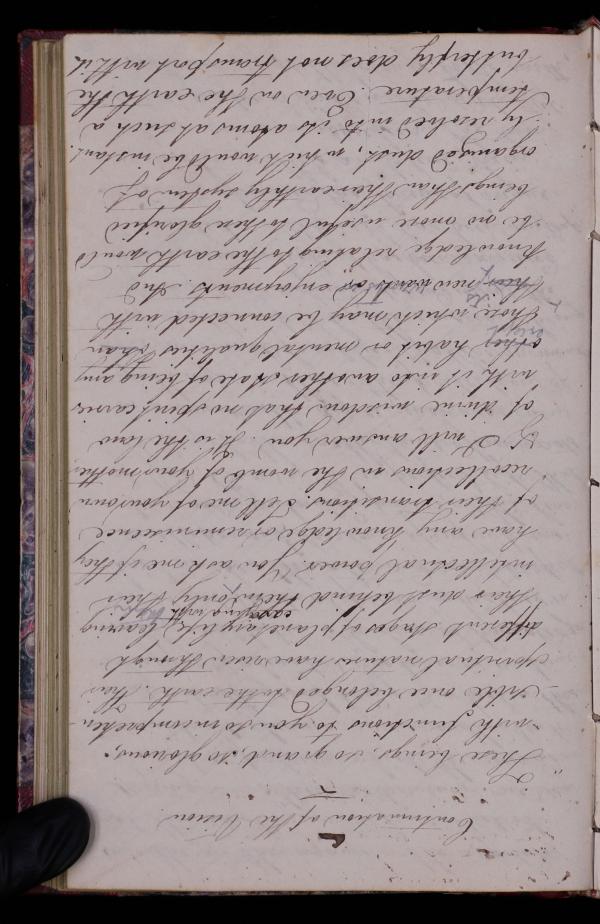 Continuation of the Vision
"These beings, so grand, so glorious,
with functions to you incomprehen-
-sible once belonged to the earth. Their
spiritual natures have risen through
different stages of planetary life, leaving
their dust behind them, carrying with them only their
intellectual power. You ask me if they
have any knowledge or reminiscence
of their transitions. Tell me of your own
recollections in the womb of your mother
& I will answer you. It is the law
of divine wisdom that no spirit carries
with it into another state of being any
other habit or mental qualities than
those which may be connected with
its new wants or enjoyments. And
knowledge relating to the earth would
be no more useful to these glorified
beings than their earthly system of
organized dust, which would be instant-
-ly resolved into its atoms at such a
temperature. Even on the earth the
butterfly does not transport with it